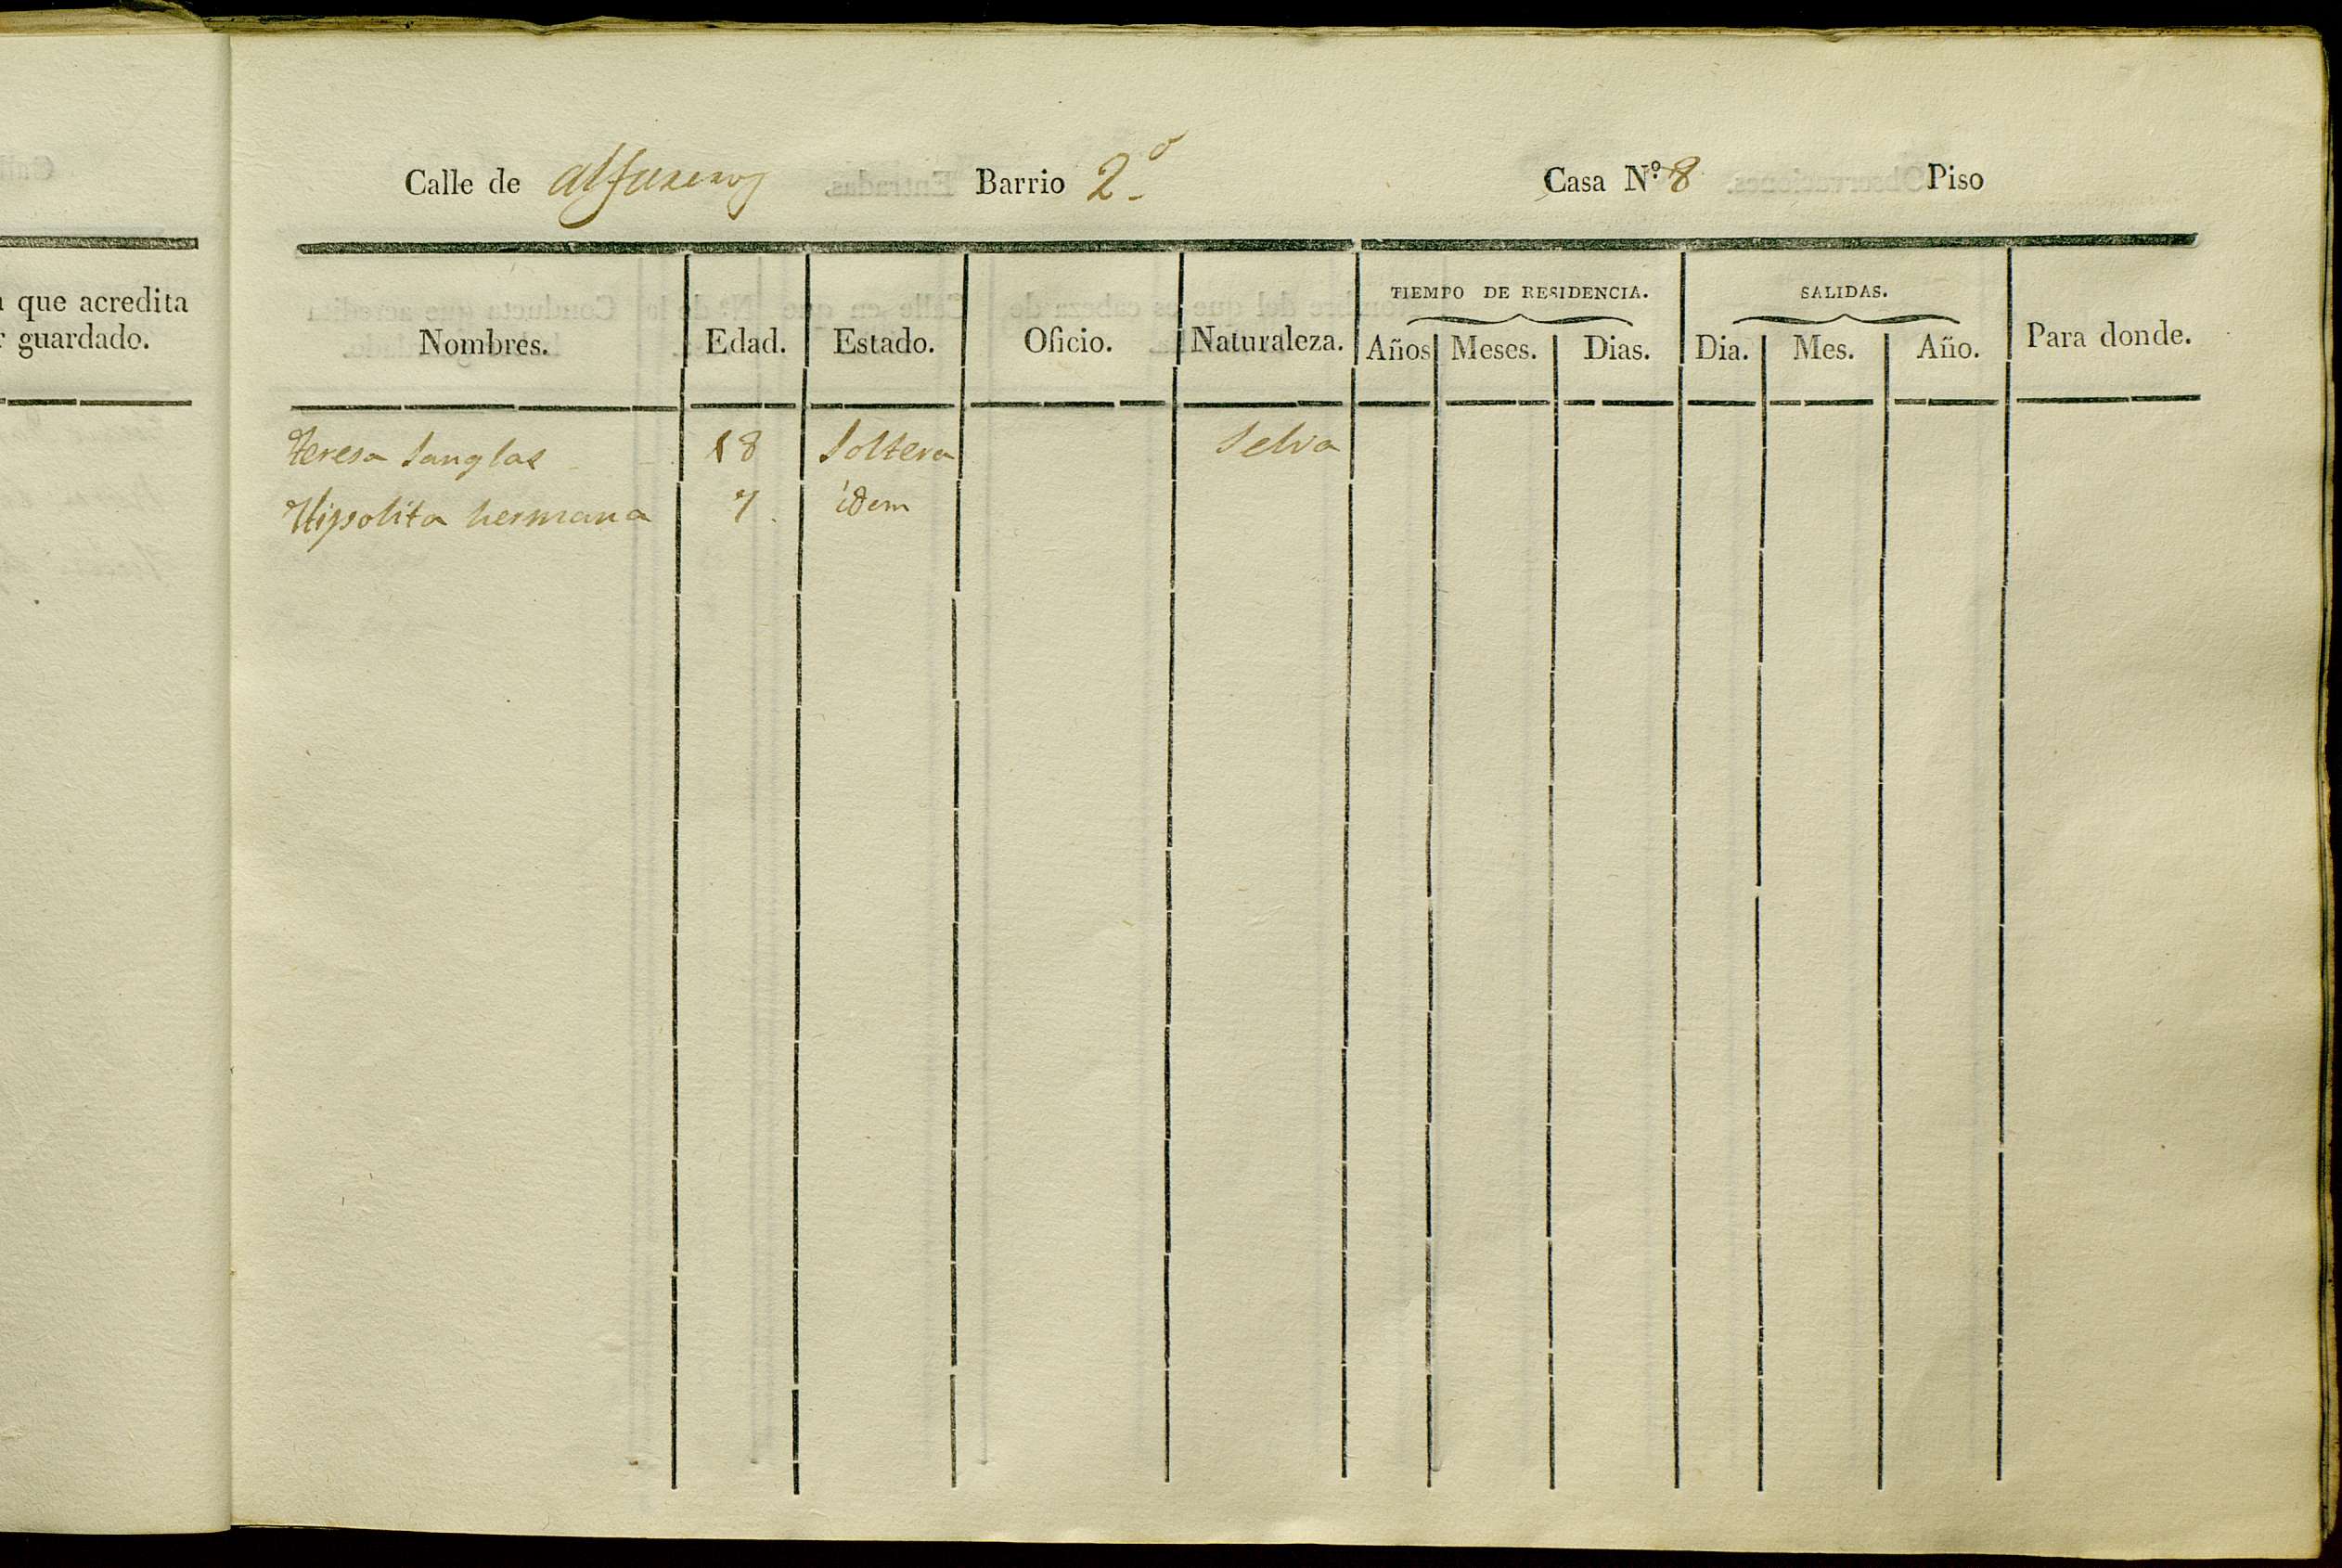 Calle de alfareros Barrio 2.º Casa N.º 8 Piso
que acredita
guardado.
TIEMPO DE RESIDENCIA. SALIDAS.
Nombres. Edad. Estado. Oficio. Naturaleza. Años Meses. Dias. Dia. Mes. Año. Para donde.
Teresa Sanglas 18 Soltera Selva
Hipolita hermana 7 idem